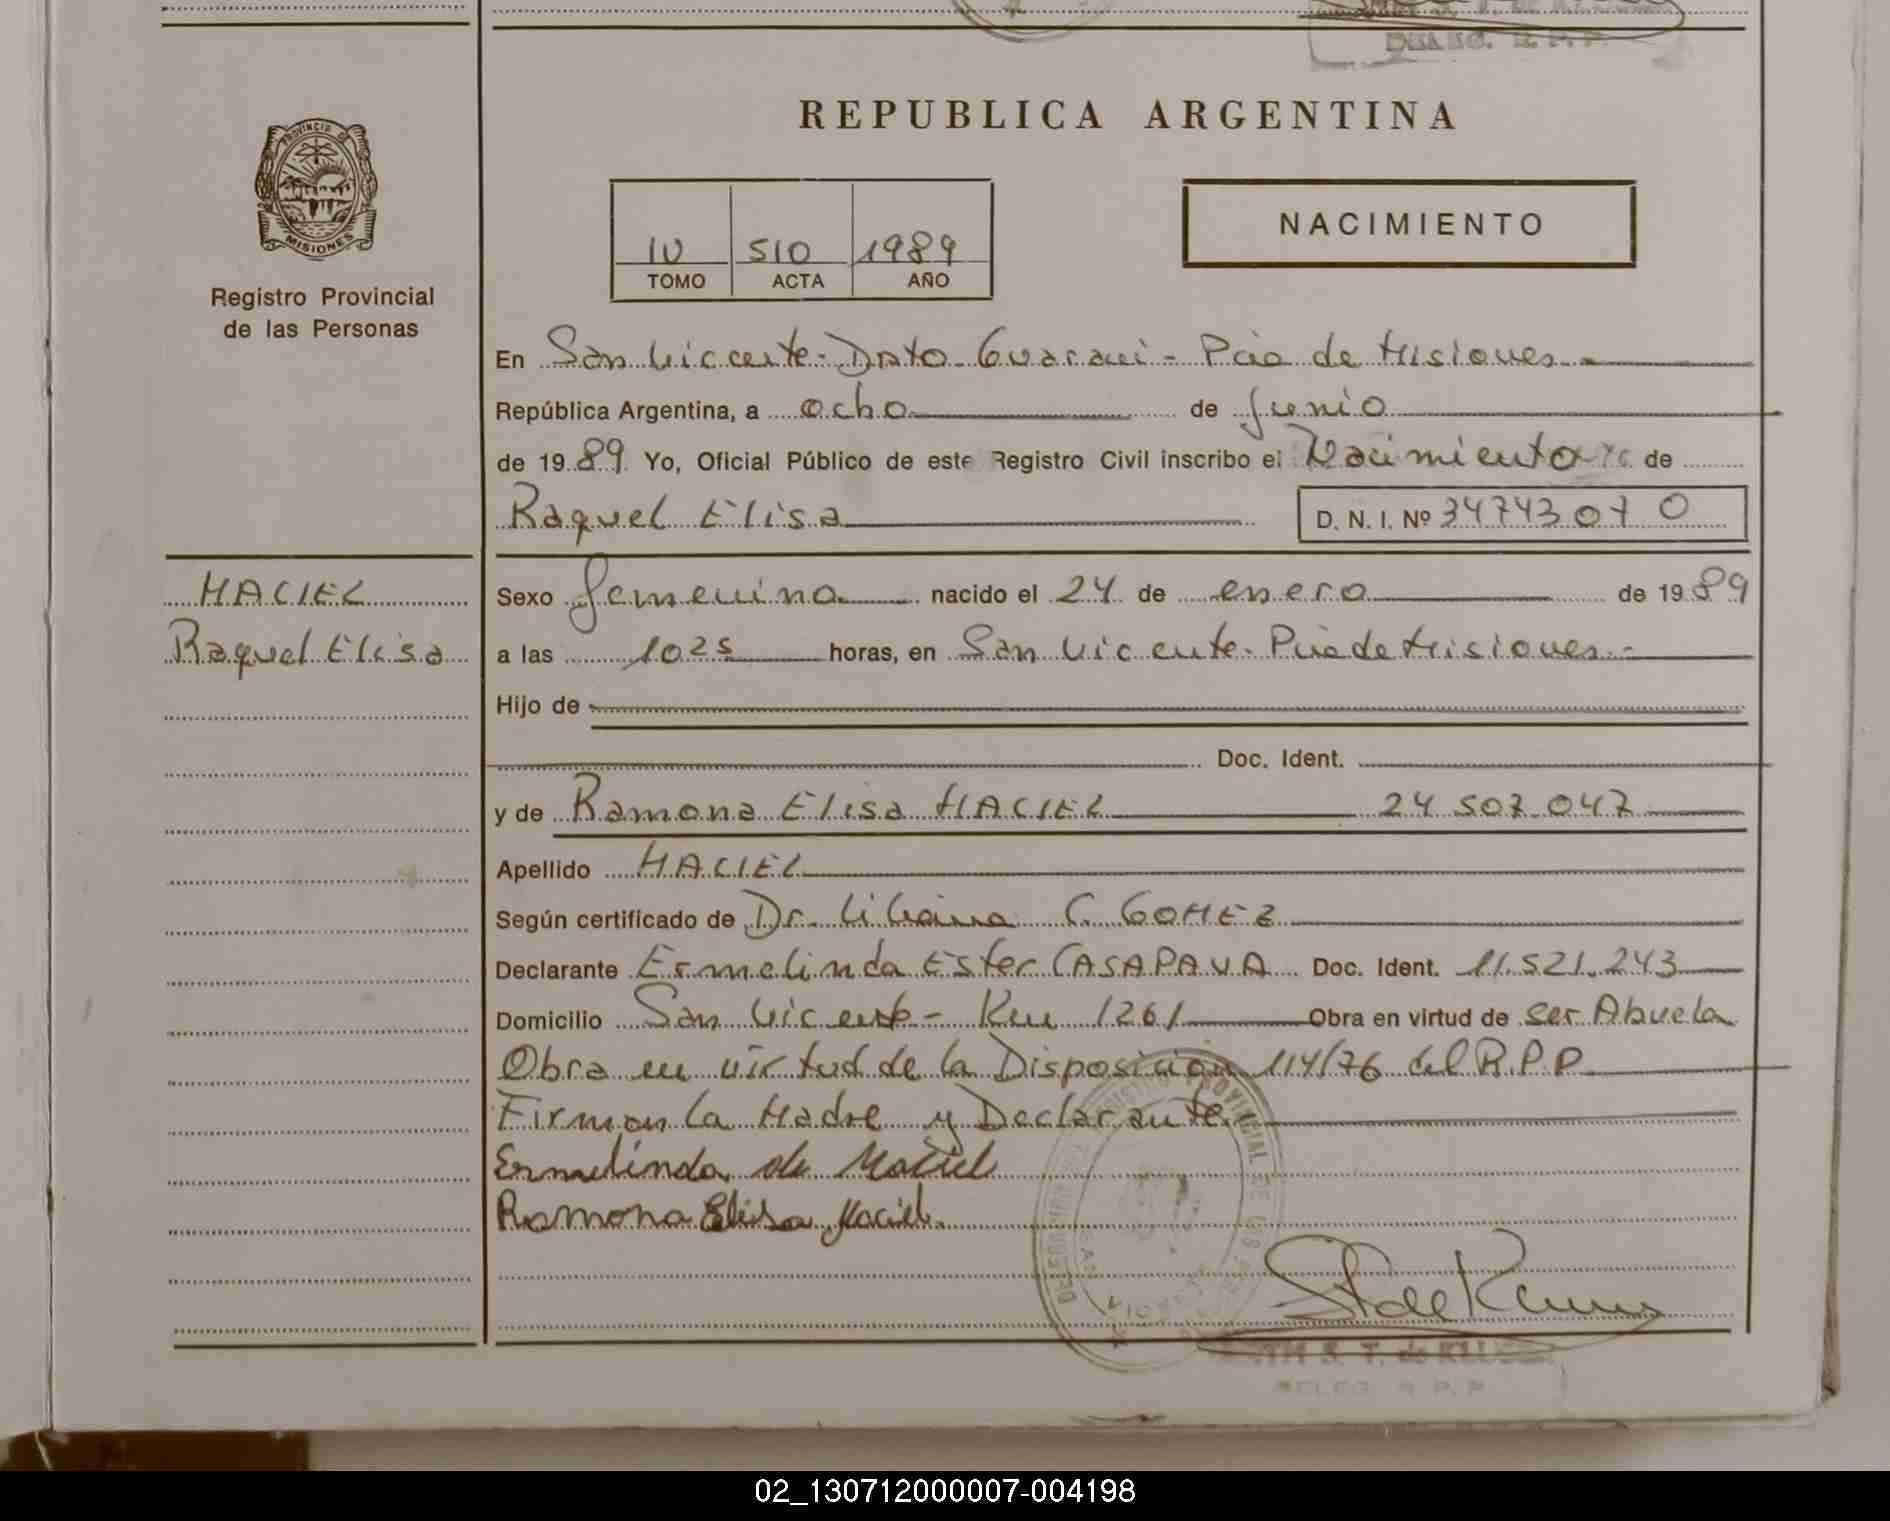 DELEG. R. P. P.
REPUBLICA ARGENTINA
PROVINCIA DE
MISIONES
Registro Provincial
de las Personas
IV 510 1989
TOMO ACTA AÑO
NACIMIENTO
En San Vicente - Dpto Guarani - Pcia de Misiones -
República Argentina, a ocho de Junio
de 1989 Yo, Oficial Público de este Registro Civil inscribo el Nacimiento de
Raquel Elisa D. N. I. Nº 34743070
MACIEL
Raquel Elisa
Sexo femenino nacido el 24 de enero de 1989
a las 1025 horas, en San Vicente - Pcia de Misiones -
Hijo de
Doc. Ident.
y de Ramona Elisa MACIEL 24.507.047
Apellido MACIEL
Según certificado de Dr. Liliana C. GOMEZ
Declarante Ermelinda Ester CASAPAVA Doc. Ident. 11.521.243
Domicilio San Vicente - Km 1261 Obra en virtud de ser Abuela
Obra en virtud de la Disposición 114/76 del R.P.P
Firman la Madre y Declarante
Ermelinda de Maciel
Ramona Elisa Maciel
DELEG. R. P. P.
02_130712000007-004198